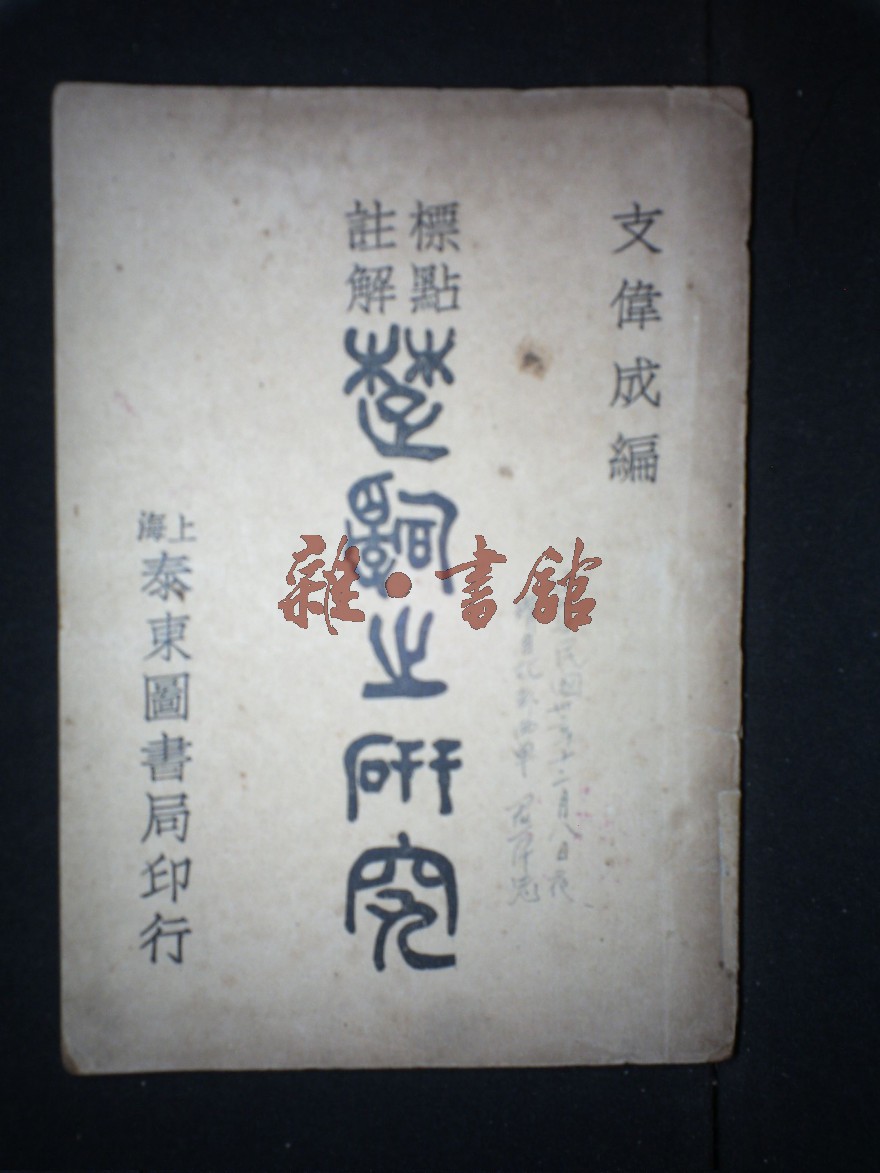 支偉成編
標點
註解
楚詞之研究
上海
泰東圖書局印行
民國卅年十二月八日夜
雜·書館